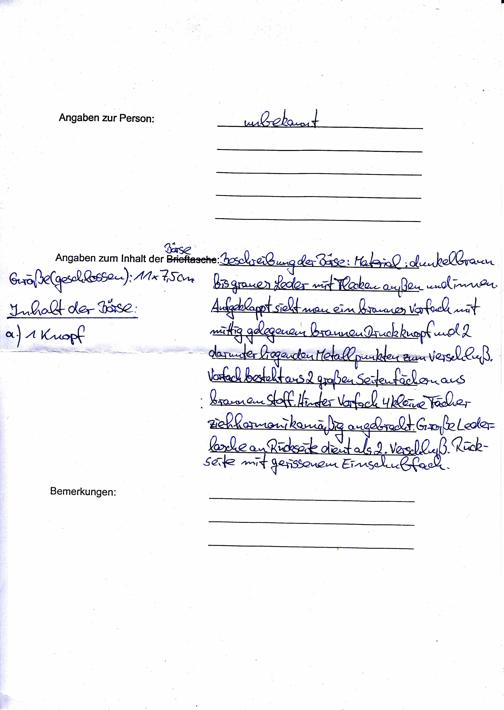 Angaben zur Person:
unbekannt
Börse
Angaben zum Inhalt der Brieftasche: Beschreibung der Börse: Material: dunkelbraun
Größe (geschlossen): 11 x 7,5 cm
bis graues Leder mit Flecken außen und innen.
Inhalt der Börse:
Aufgeklappt sieht man ein braunes Vorfach mit
a.) 1 Knopf
mittig gelegenem braunen Druckknopf und 2
darunter liegenden Metallpunkten zum Verschluß.
Vorfach besteht aus 2 großen Seitenfächern aus
braunem Stoff. Hinter Vorfach 4 kleine Fächer
ziehharmonikamäßig angebracht. Große Leder-
lasche an Rückseite dient als 2. Verschluß. Rück-
seite mit gerissenem Einschubfach.
Bemerkungen: